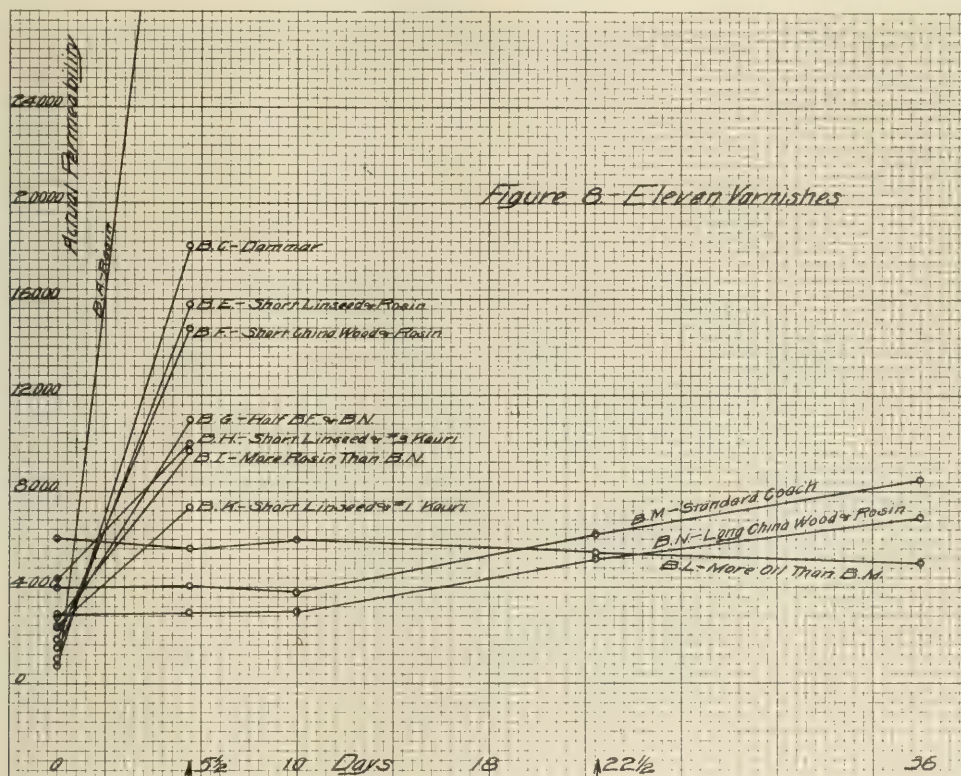 Actual Permeability
24000
20000
16000
12000
8000
4000
0
Figure 8 - Eleven Varnishes
B.A-Rosin
B.C-Dammar
B.E.-Short Linseed & Rosin
B.F.-Short China Wood & Rosin
B.G.-Half B.F. & B.N.
B.H.-Short Linseed & #3 Kauri
B.I.-More Rosin Than B.N.
B.K-Short Linseed & #1 Kauri
B.M-Standard Coach
B.N.-Long China Wood & Rosin
B.L-More Oil Than B.M.
0 5½ 10 Days 18 22½ 36